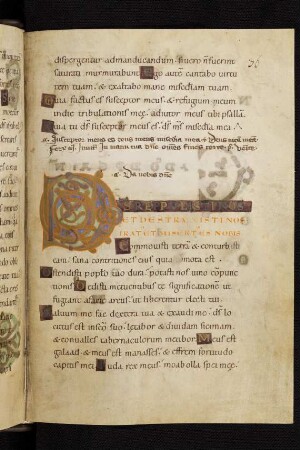 dispergentur ad manducandum si vero n̄ fuerint
saturati murmurabunt Ego aut̄ cantabo virtu
tem tuam & exaltabo mane mis̄ediam tuam
Quia factus es susceptor meus & refugium meum
in die tribulationis meę adiutor meus tibi psallā
Quia tu d̄s susceptor meus d̄s m̄s mis̄edia mea
a. Da nobis dn̄e
DS REPPULISTI NOS
ET DESTRUXISTI NOS
IRATUS ES ET MISERTUS ES NOBIS
Commovisti terrā & conturbasti
eam sana contritiones eius quia mota est
Ostendisti populo tuo dura potasti nos vino compunc
tionis Dedisti metuentibus te significationem ut
fugiant a facie arcus ut liberentur electi tui
Salvum me fac dextera tua & exaudi me d̄s lo
cutus est in sc̄o suo lętabor & dividam siccimam
& convallem tabernaculorum metibor Meus est
galaad & meus est manasses & effrem fortitudo
capitis mei Iuda rex meus moab olla spei meę